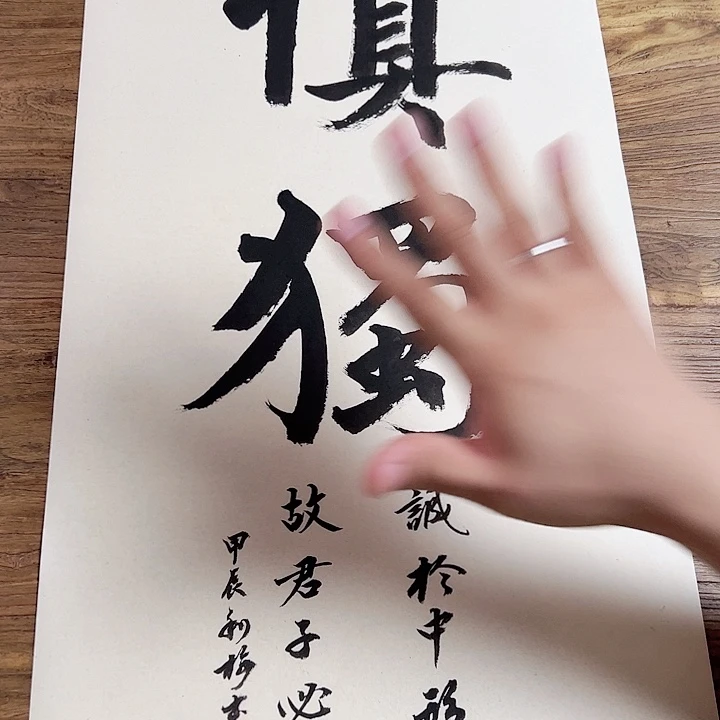 慎獨
誠於中形
故君子必
甲辰利梅書